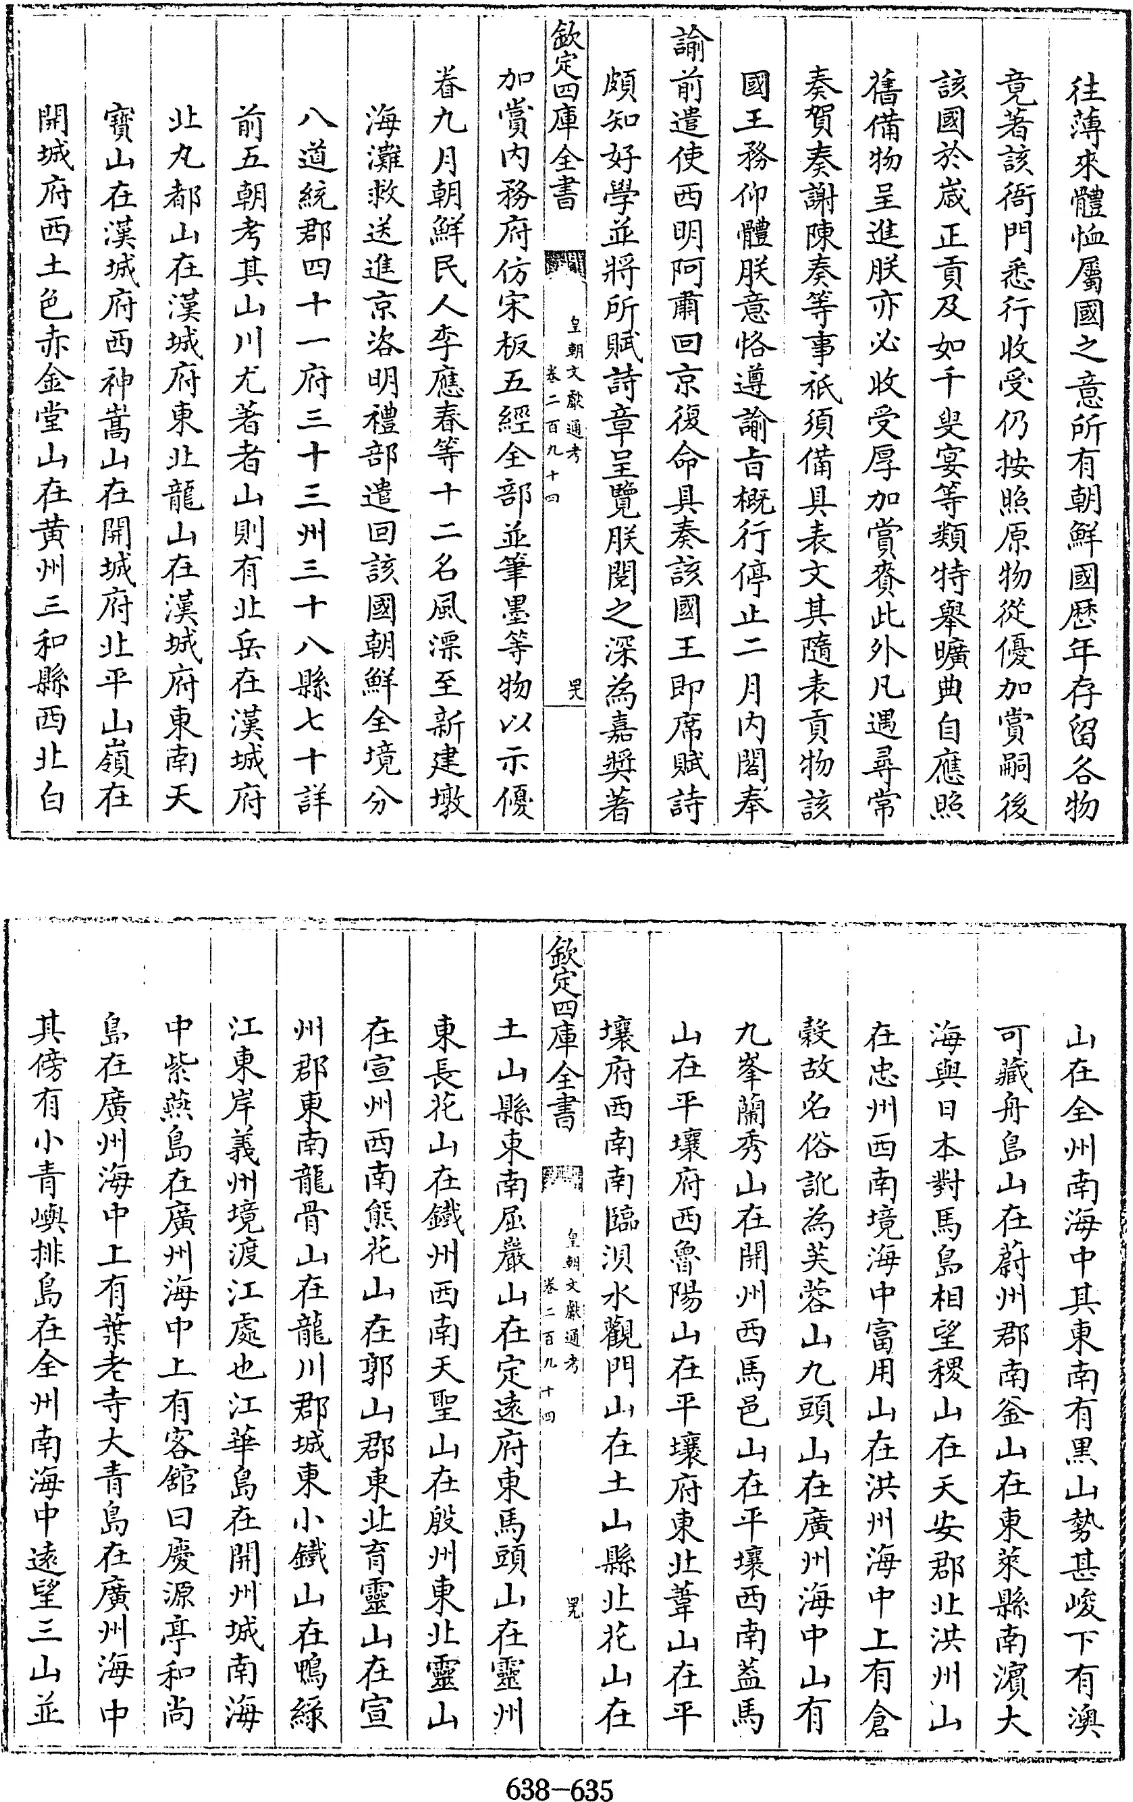 往薄來體恤屬國之意所有朝鮮國歷年存留各物
竟著該衙門悉行收受仍按照原物從優加賞嗣後
該國於歲正貢及如千叟宴等類特舉曠典自應照
舊備物呈進朕亦必收受厚加賞賚此外凡遇尋常
奏賀奏謝陳奏等事祇須備具表文其隨表貢物該
國王務仰體朕意恪遵諭旨概行停止二月內閣奉
諭前遣使西明阿甯回京復命具奏該國王即席賦詩
頗知好學並將所賦詩章呈覽朕閱之深為嘉奬著
欽定四庫全書
皇朝文獻通考
卷二百九十四
加賞內務府仿宋板五經全部並筆墨等物以示優
眷九月朝鮮民人李應春等十二名風漂至新建墩
海灘救送進京洛明禮部遣回該國朝鮮全境分
八道統郡四十一府三十三州三十八縣七十詳
前五朝考其山川尤著者山則有北岳在漢城府
北九都山在漢城府東北龍山在漢城府東南天
寶山在漢城府西神嵩山在開城府北平山嶺在
開城府西土色赤金堂山在黃州三和縣西北白
山在全州南海中其東南有黒山勢甚峻下有澳
可藏舟島山在蔚州郡南釜山在東萊縣南濱大
海與日本對馬島相望稷山在天安郡北洪州山
在忠州西南境海中富用山在洪州海中上有倉
穀故名俗訛為芙蓉山九頭山在廣州海中山有
九峯蘭秀山在開州西馬邑山在平壤西南蓋馬
山在平壤府西魯陽山在平壤府東北葦山在平
壤府西南南臨浿水觀門山在土山縣北花山在
欽定四庫全書
皇朝文獻通考
卷二百九十四
土山縣東南屈嚴山在定遠府東馬頭山在靈州
東長花山在鐵州西南天聖山在殷州東北靈山
在宣州西南熊花山在郭山郡東北育靈山在宣
州郡東南龍骨山在龍川郡城東小鐵山在鴨綠
江東岸義州境渡江處也江華島在開州城南海
中紫燕島在廣州海中上有客舘曰慶源亭和尚
島在廣州海中上有葉老寺大青島在廣州海中
其傍有小青嶼排島在全州南海中遠望三山並
638-635